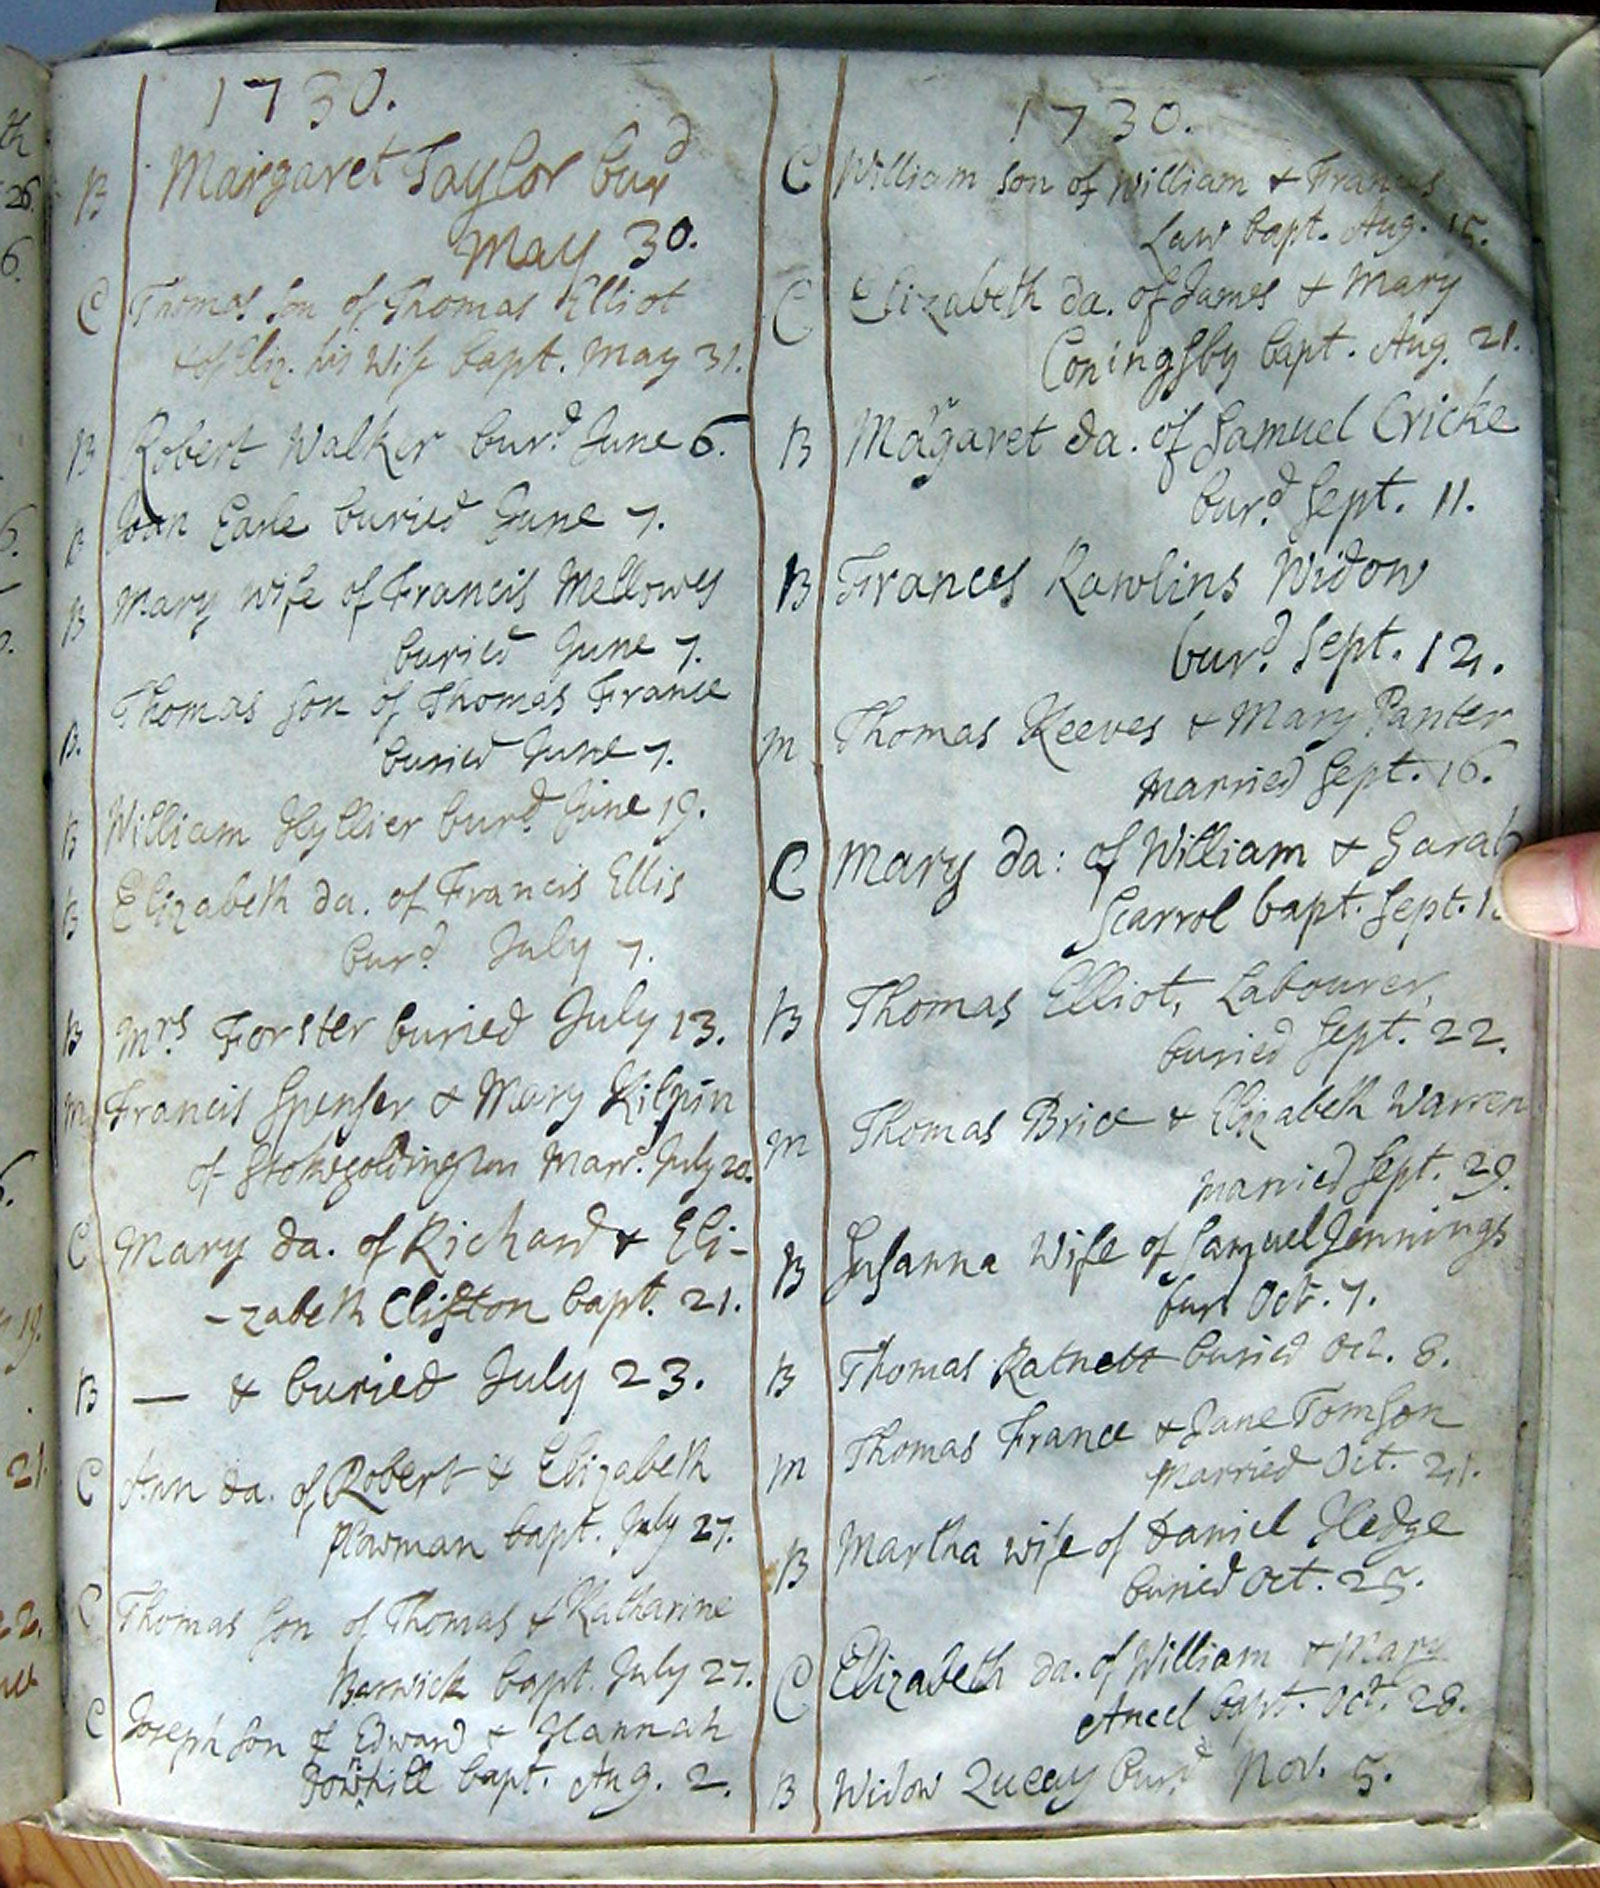 1730.
B Margaret Taylor bur^d
May 30.
C Thomas Son of Thomas Elliot
& of Eliz. his Wife bapt. May 31.
B Robert Walker bur^d. June 6.
B Joan Earle buried June 7.
B Mary wife of Francis Mellowes
buried June 7.
B. Thomas Son of Thomas France
buried June 7.
B William Hyllier bur^d. June 19.
B Elizabeth da. of Francis Ellis
bur^d. July 7.
B M^rs. Forster buried July 13.
m Francis Spenser & Mary Kilpin
of Stokegoldington Marr^d. July 20.
C Mary da. of Richard & Eli-
-zabeth Clifton bapt. 21.
B — & buried July 23.
C Ann da. of Robert & Elizabeth
Plowman bapt. July 27.
C Thomas Son of Thomas & Katharine
Barwick bapt. July 27.
C Joseph Son of Edward & Hannah
bapt. Aug. 2.
1730.
C William Son of William & Frances
Law bapt. Aug. 15.
C Elizabeth da. of James & Mary
Coningsby bapt. Aug. 21.
B Margaret da. of Samuel Cricke
bur^d. Sept. 11.
B Frances Rawlins Widow
bur^d. Sept. 12.
m Thomas Reeves & Mary Panter
Married Sept. 16.
C Mary da: of William & Sarah
Scarrol bapt. Sept.
B Thomas Elliot, Labourer,
buried Sept. 22.
m Thomas Brice & Elizabeth Warren
Married Sept. 29.
B Susanna Wife of Samuel Jennings
bur^d Oct. 7.
B Thomas Ratnett buried Oct. 8.
m Thomas France & Jane Tomson
Married Oct. 21.
B Martha wife of Daniel Hedge
buried Oct. 25.
C Elizabeth da. of William & Mary
Ancel bapt. Oct. 28.
B Widow bur^d. Nov. 5.